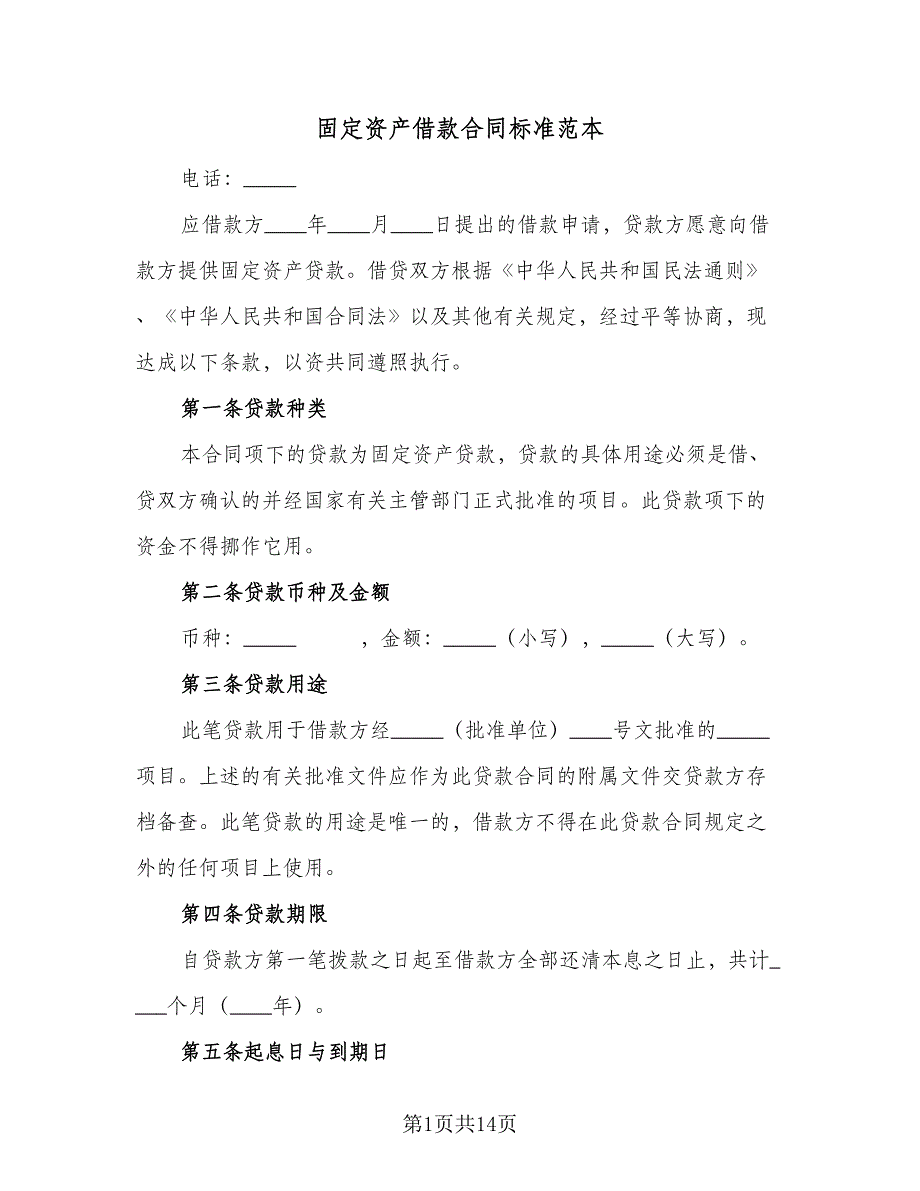 固定资产借款合同标准范本
电话：_____
应借款方____年____月____日提出的借款申请，贷款方愿意向借
款方提供固定资产贷款。借贷双方根据《中华人民共和国民法通则》
、《中华人民共和国合同法》以及其他有关规定，经过平等协商，现
达成以下条款，以资共同遵照执行。
第一条贷款种类
本合同项下的贷款为固定资产贷款，贷款的具体用途必须是借、
贷双方确认的并经国家有关主管部门正式批准的项目。此贷款项下的
资金不得挪作它用。
第二条贷款币种及金额
币种：_____　　　，金额：_____（小写），_____（大写）。
第三条贷款用途
此笔贷款用于借款方经_____（批准单位）____号文批准的_____
项目。上述的有关批准文件应作为此贷款合同的附属文件交贷款方存
档备查。此笔贷款的用途是唯一的，借款方不得在此贷款合同规定之
外的任何项目上使用。
第四条贷款期限
自贷款方第一笔拨款之日起至借款方全部还清本息之日止，共计_
___个月（____年）。
第五条起息日与到期日
第1页共14页